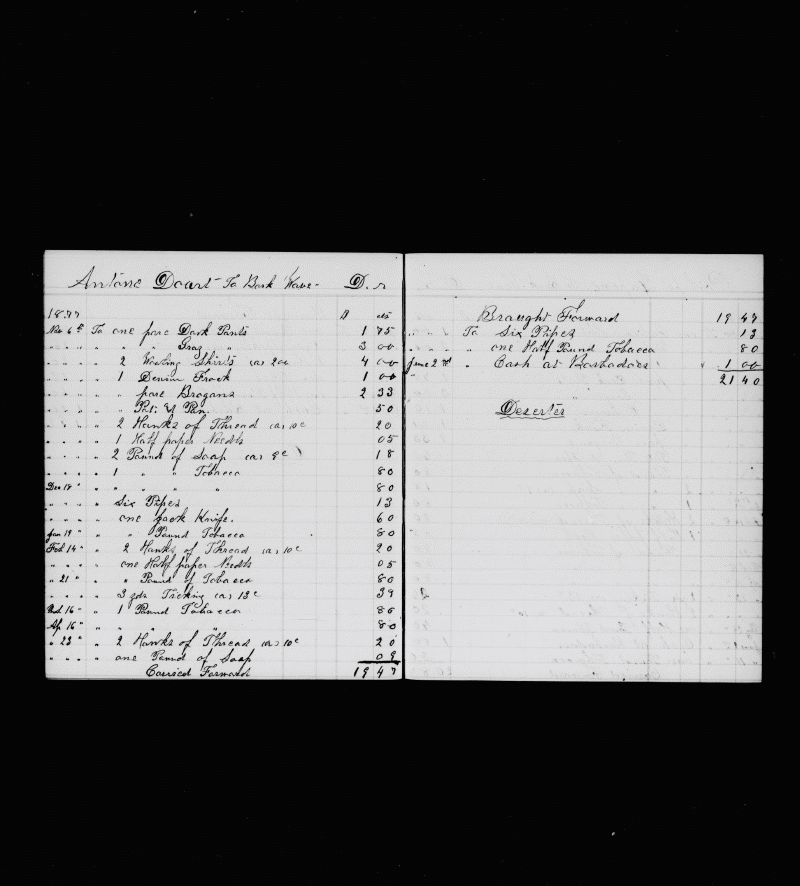 Antone Doart To Bark Wave - D.r
1877 D cts
Nov 6th To one pare Dark Pants 1 75
" " " " " Gray " 3 00
" " " " 2 Wooling Shirts (a) 2 00 4 00
" " " " 1 Denim Frock 1 00
" " " " " pare Brogans 2 33
" " " " " Pot & Pan 50
" " " " 2 Hanks of Thread (a) 10c 20
" " " " 1 Half paper Needls 05
" " " " 2 Pound of Soap (a) 9c 18
" " " " 1 " " Tobacco 80
Dec 18 " " " " " 80
" " " " Six Pipes 13
" " " " one jack Knife. 60
Jan 19 " " " Pound Tobacco 80
Feb 14 " " 2 Hanks of Thread (a) 10c 20
" " " " one Half paper Needls 05
" 21 " " " Pound of Tobacco 80
" " " " 3 yds Ticking (a) 13c 39
16 " " 1 Pound Tobacco 80
Ap 16 " " " " " 80
" 23 " " 2 Hanks of Thread (a) 10c 20
" " " " one Pound of Soap 09
Carried Forward 19 47
Braught Forward 19 47
" " " To Six Pipes 13
" " " " one Half Pound Tobacco 80
June 2nd " Cash at Barbadoes 1 00
21 40
Deserter